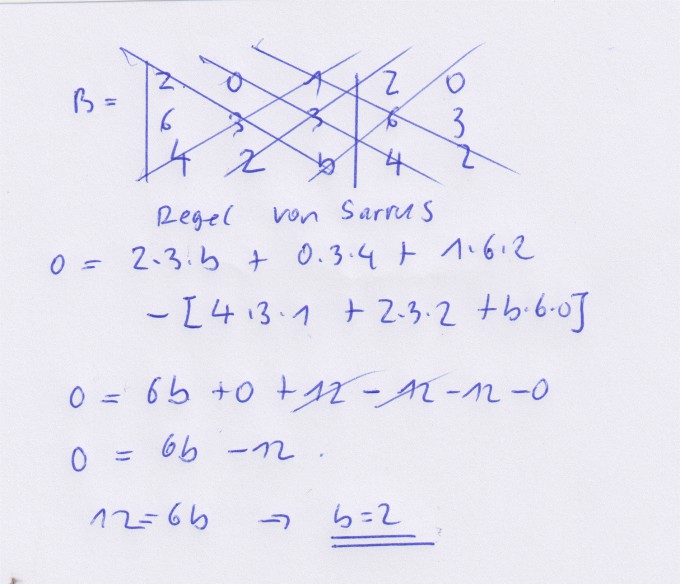 B = | 2 0 1 | 2 0
6 3 3 | 6 3
4 2 b | 4 2
Regel von Sarrus
0 = 2·3·b + 0·3·4 + 1·6·2
- [4·3·1 + 2·3·2 + b·6·0]
0 = 6b + 0 + 12 - 12 - 12 - 0
0 = 6b - 12.
12 = 6b → b = 2